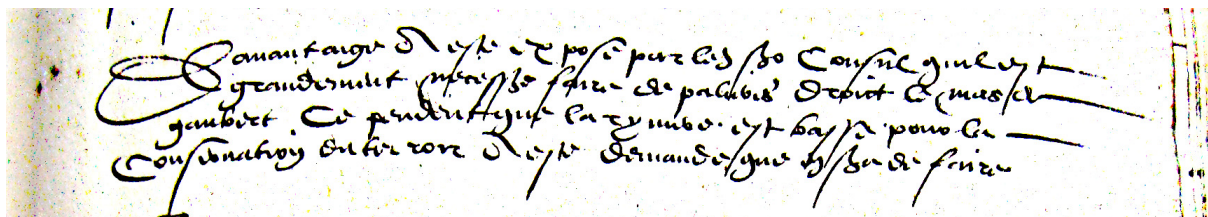 Davantaige A este expose par led sr Consul quil est
grandement necessre faire de palavis droict le mas de
gaubert Ce pendent que la ryviere est basse pour la
Conservation du terroir A este demande que sera de faire